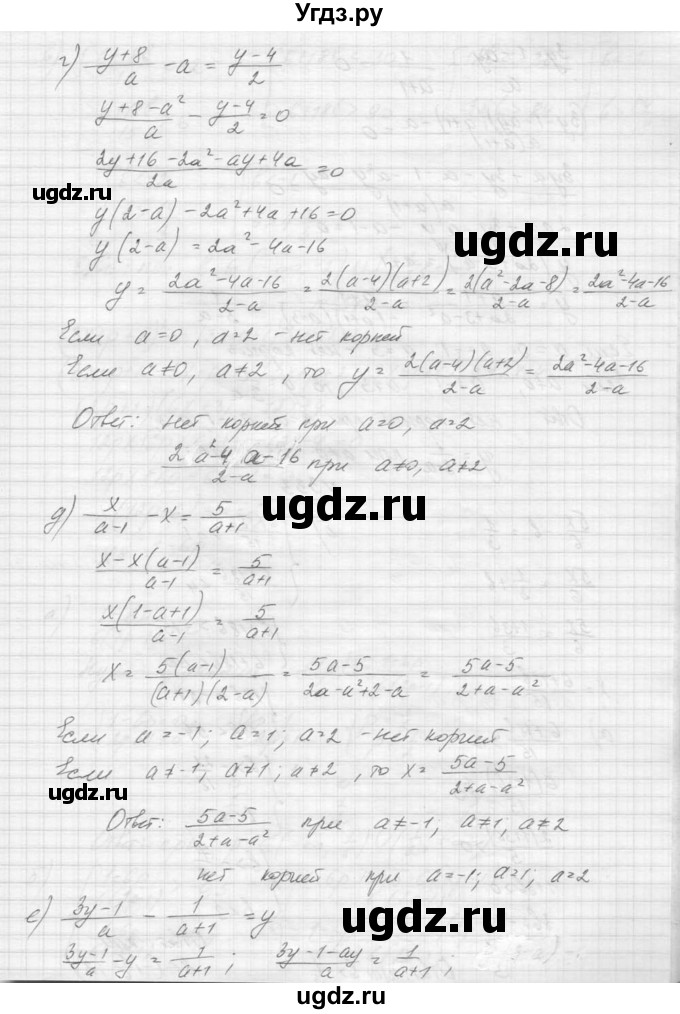 Угдз.ру
г) (y+8)/a - a = (y-4)/2
(y+8-a²)/a - (y-4)/2 = 0
(2y+16-2a²-ay+4a)/2a = 0
ugdz.ru
y(2-a) - 2a²+4a+16=0
ugdz.ru
y(2-a) = 2a²-4a-16
y = (2a²-4a-16)/(2-a) = 2(a-4)(a+2)/(2-a) = 2(a²-2a-8)/(2-a) = (2a²-4a-16)/(2-a)
Если a=0, a=2 - нет корней
Если a≠0, a≠2, то y = 2(a-4)(a+2)/(2-a) = (2a²-4a-16)/(2-a)
Ответ: нет корней при a=0, a=2
(2a²-4a-16)/(2-a) при a≠0, a≠2
ugdz.ru
д) x/(a-1) - x = 5/(a+1)
ugdz.ru
(x-x(a-1))/(a-1) = 5/(a+1)
x(1-a+1)/(a-1) = 5/(a+1)
ugdz.ru
x = 5(a-1)/((a+1)(2-a)) = (5a-5)/(2a-a²+2-a) = (5a-5)/(2+a-a²)
Если a=-1; a=1; a=2 - нет корней
Если a≠-1; a≠1; a≠2, то x = (5a-5)/(2+a-a²)
ugdz.ru
Ответ: (5a-5)/(2+a-a²) при a≠-1; a≠1, a≠2
нет корней при a=-1; a=1; a=2
е) (3y-1)/a - 1/(a+1) = y
ugdz.ru
(3y-1)/a - y = 1/(a+1); (3y-1-ay)/a = 1/(a+1);
ugdz.ru